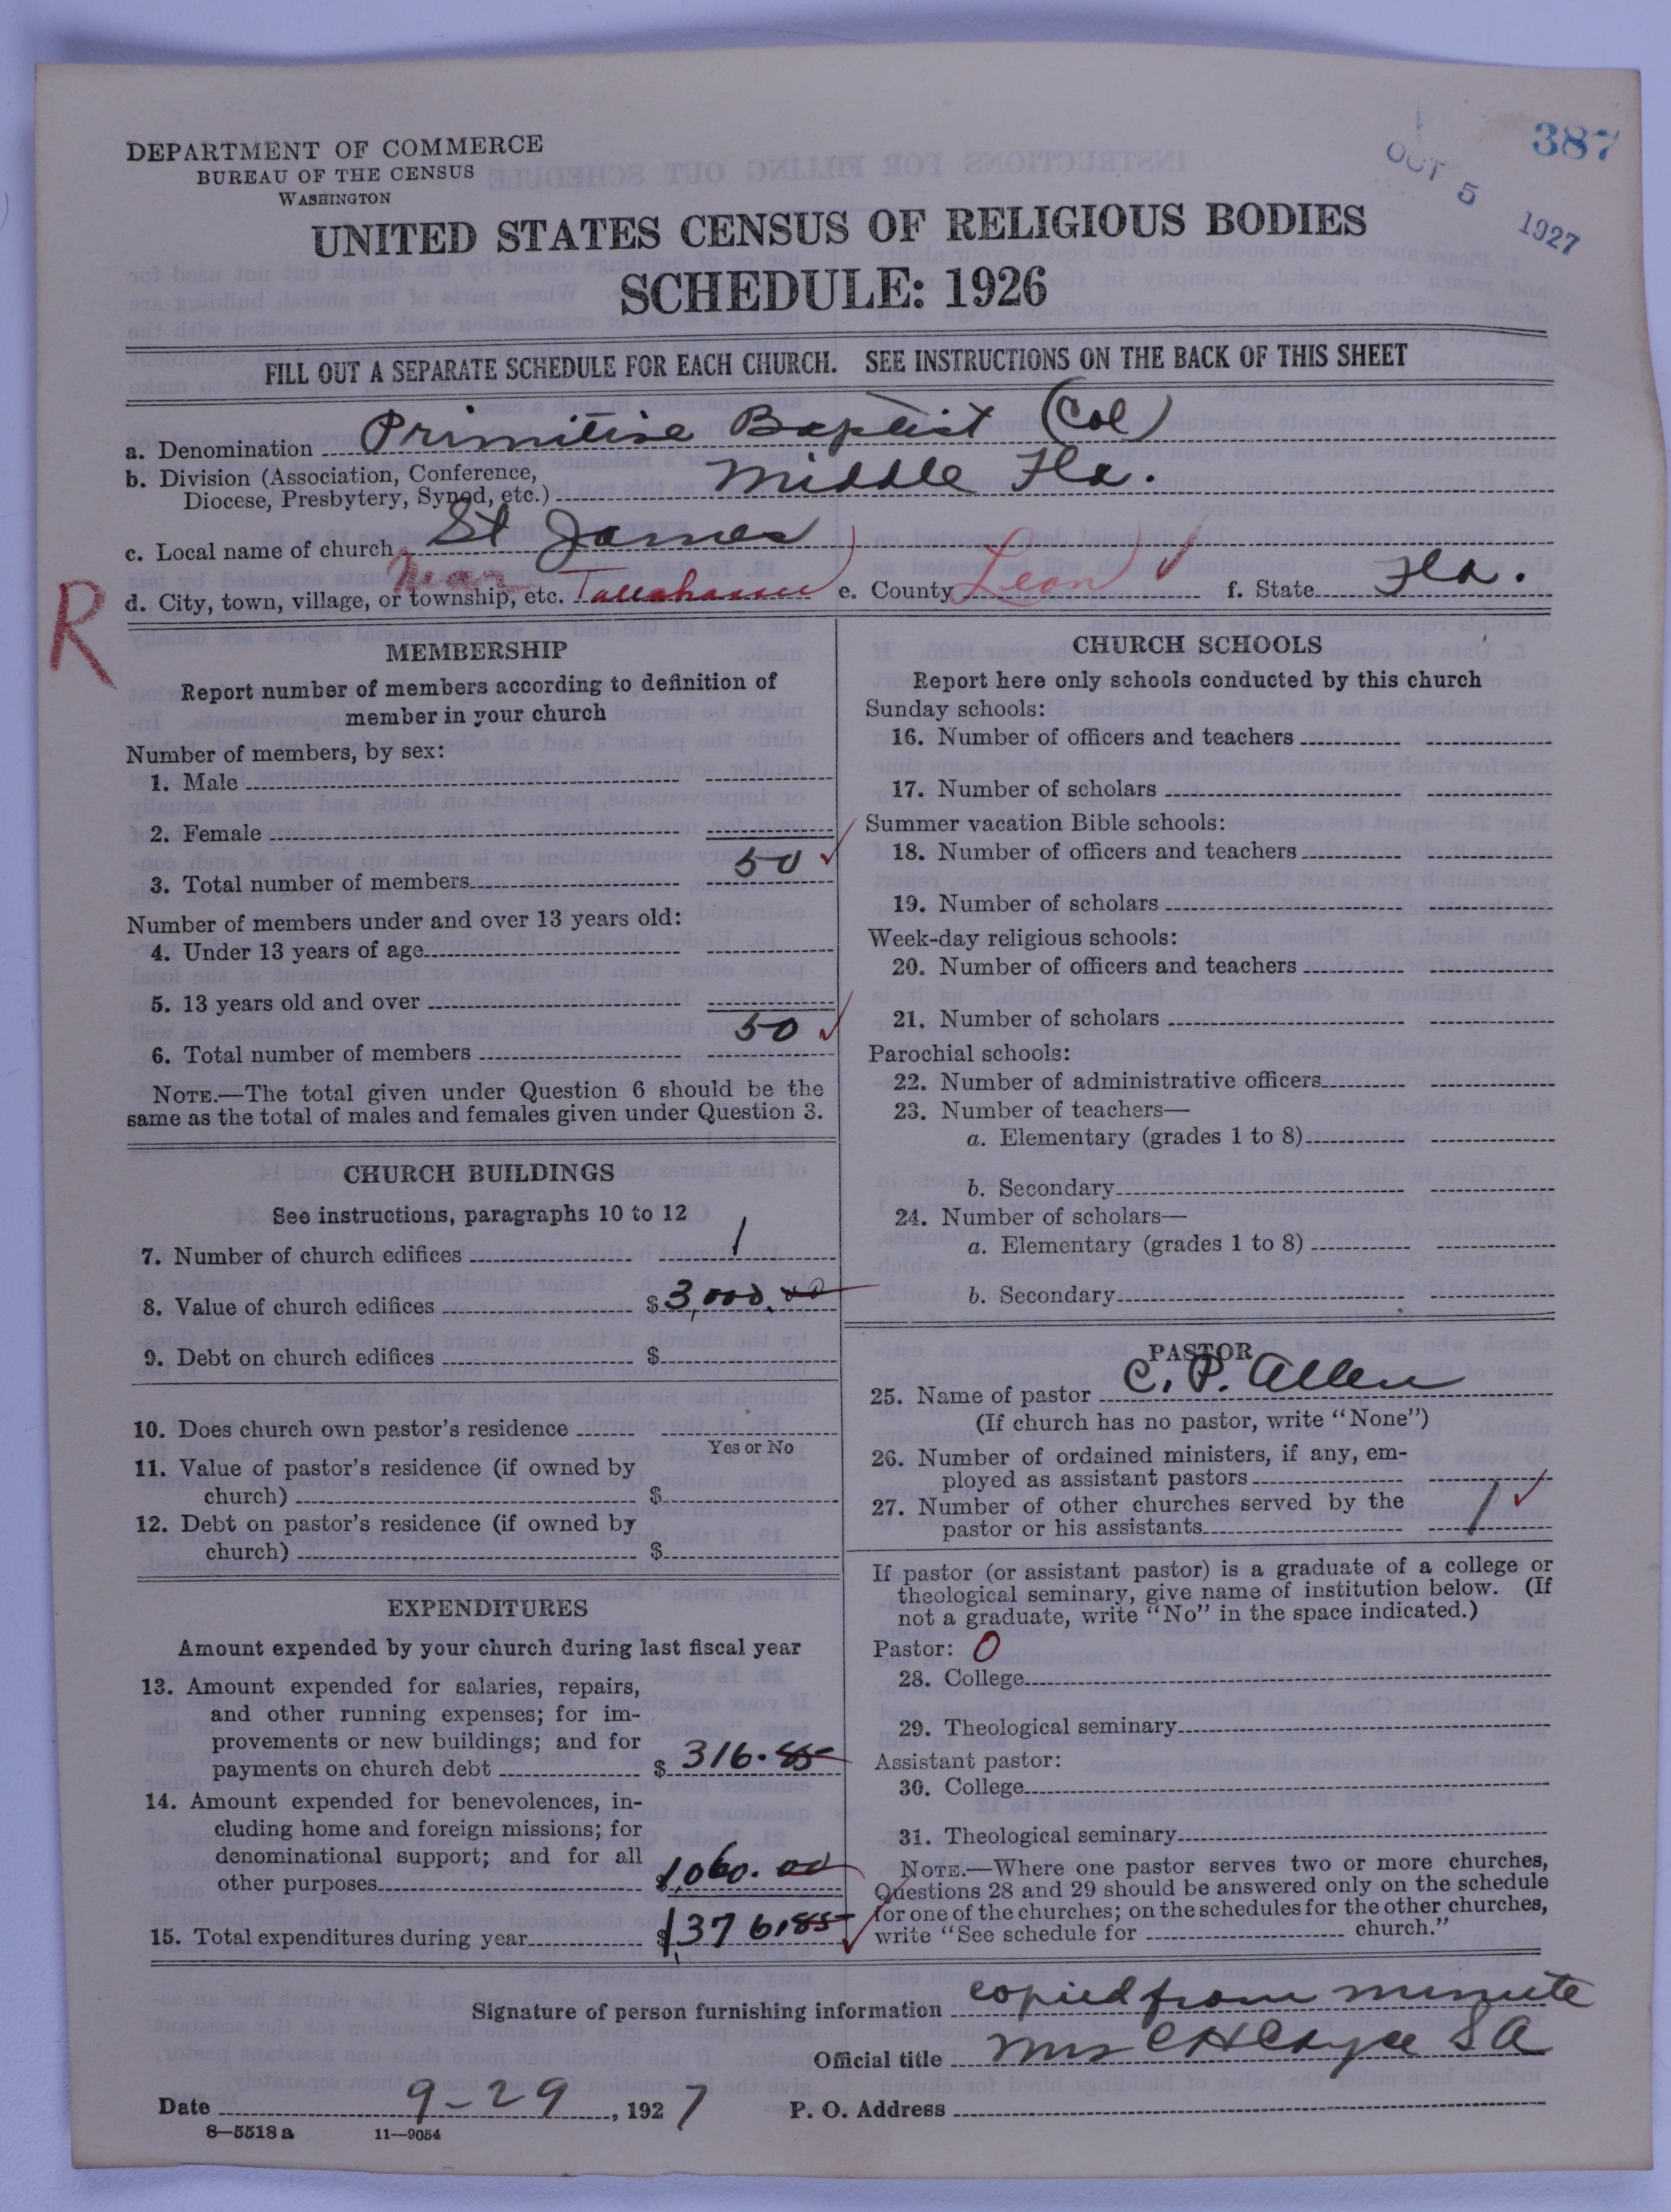 387
OCT 5 1927
DEPARTMENT OF COMMERCE
BUREAU OF THE CENSUS
WASHINGTON
UNITED STATES CENSUS OF RELIGIOUS BODIES
SCHEDULE: 1926
FILL OUT A SEPARATE SCHEDULE FOR EACH CHURCH. SEE INSTRUCTIONS ON THE BACK OF THIS SHEET
a. Denomination Primitive Baptist (Col)
b. Division (Association, Conference,
Diocese, Presbytery, Synod, etc.) Middle Fla.
c. Local name of church St James
R
d. City, town, village, or township, etc. near Tallahassee e. County Leon f. State Fla.
MEMBERSHIP
Report number of members according to definition of
member in your church
Number of members, by sex:
1. Male
2. Female
3. Total number of members 50
Number of members under and over 13 years old:
4. Under 13 years of age
5. 13 years old and over
6. Total number of members 50
NOTE.—The total given under Question 6 should be the
same as the total of males and females given under Question 3.
CHURCH BUILDINGS
See instructions, paragraphs 10 to 12
7. Number of church edifices 1
8. Value of church edifices $3,000.00
9. Debt on church edifices $
10. Does church own pastor's residence
Yes or No
11. Value of pastor's residence (if owned by
church) $
12. Debt on pastor's residence (if owned by
church) $
EXPENDITURES
Amount expended by your church during last fiscal year
13. Amount expended for salaries, repairs,
and other running expenses; for im-
provements or new buildings; and for
payments on church debt $ 316.85
14. Amount expended for benevolences, in-
cluding home and foreign missions; for
denominational support; and for all
other purposes $1,060.00
15. Total expenditures during year $1,376.85
CHURCH SCHOOLS
Report here only schools conducted by this church
Sunday schools:
16. Number of officers and teachers
17. Number of scholars
Summer vacation Bible schools:
18. Number of officers and teachers
19. Number of scholars
Week-day religious schools:
20. Number of officers and teachers
21. Number of scholars
Parochial schools:
22. Number of administrative officers
23. Number of teachers—
a. Elementary (grades 1 to 8)
b. Secondary
24. Number of scholars—
a. Elementary (grades 1 to 8)
b. Secondary
PASTOR
25. Name of pastor C. P. Allen
(If church has no pastor, write "None")
26. Number of ordained ministers, if any, em-
ployed as assistant pastors
27. Number of other churches served by the
pastor or his assistants 1
If pastor (or assistant pastor) is a graduate of a college or
theological seminary, give name of institution below. (If
not a graduate, write "No" in the space indicated.)
Pastor: 0
28. College
29. Theological seminary
Assistant pastor:
30. College
31. Theological seminary
NOTE.—Where one pastor serves two or more churches,
Questions 28 and 29 should be answered only on the schedule
for one of the churches; on the schedules for the other churches,
write "See schedule for church."
Signature of person furnishing information copied from minute
Official title Mrs C H S A
Date 9-29, 1927 P. O. Address
8—5518 a 11—9054